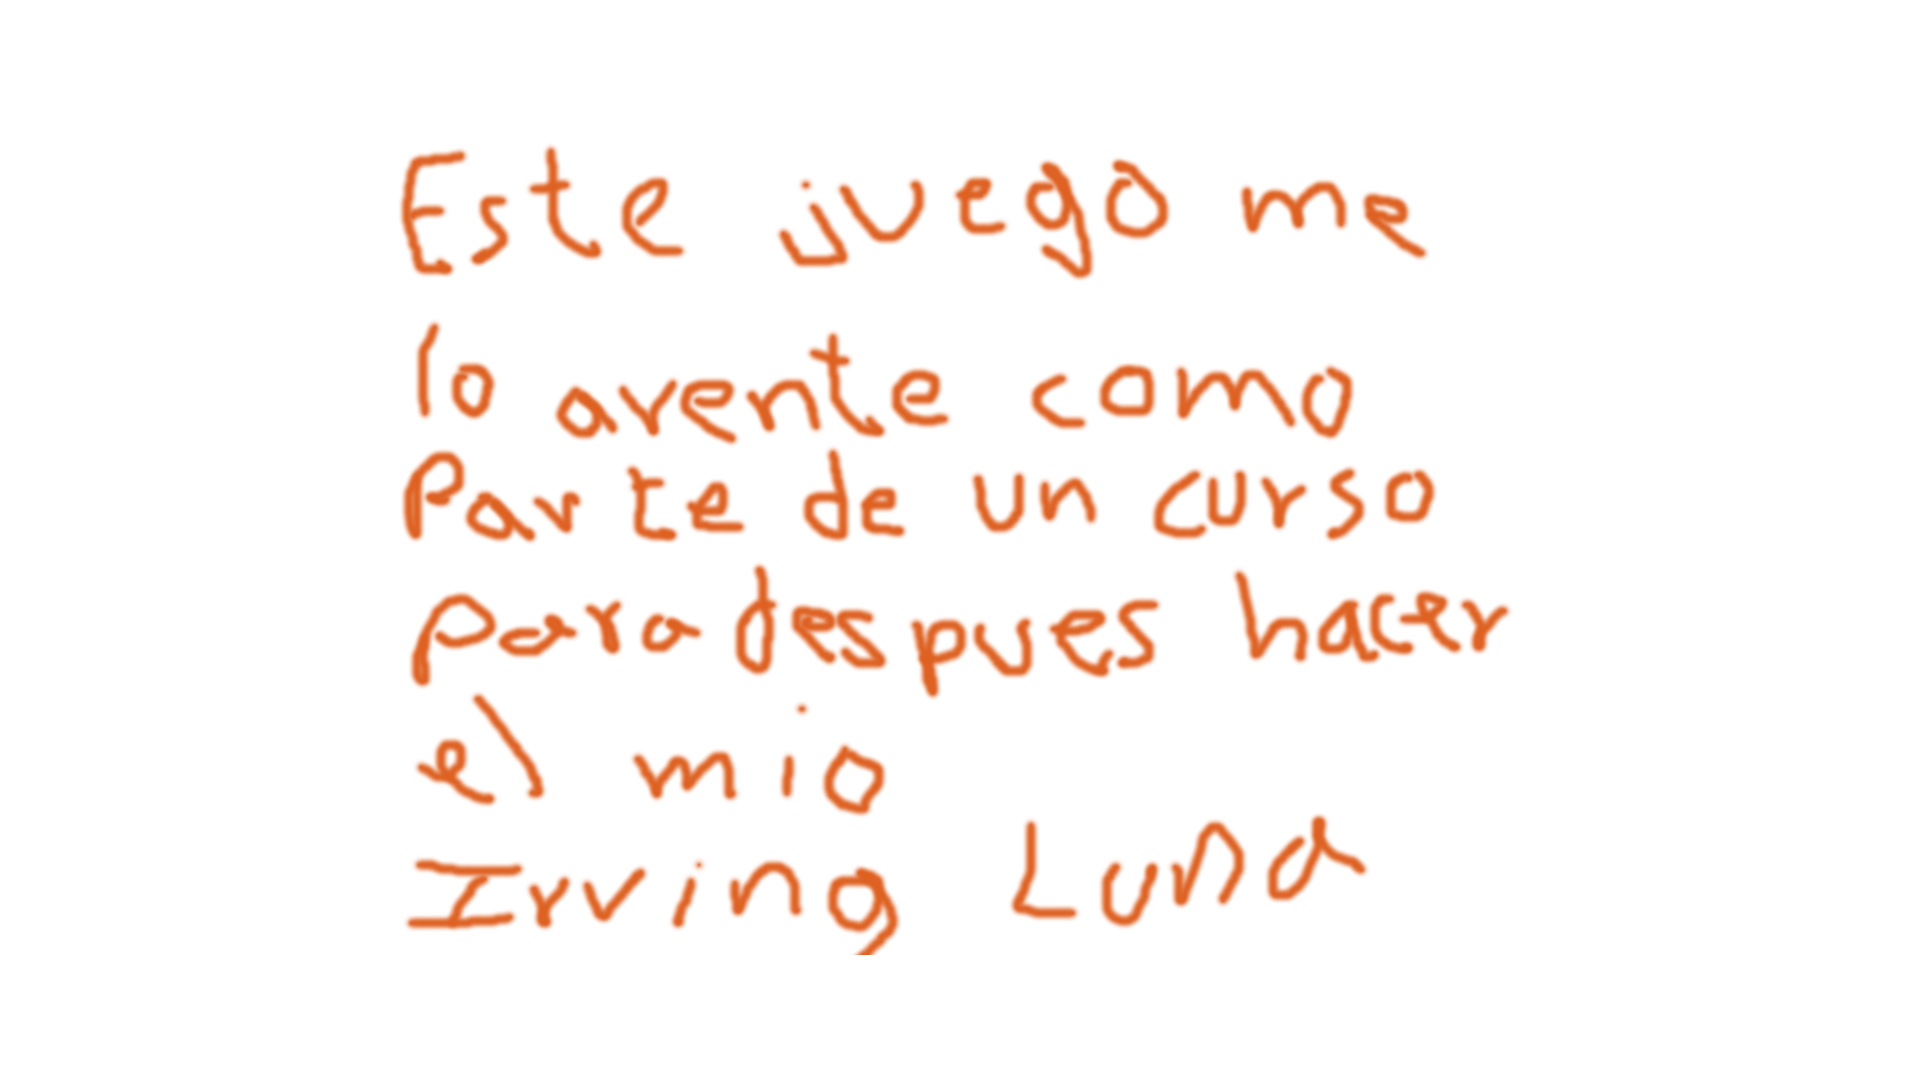 Este juego me
lo avente como
Parte de un curso
para despues hacer
el mio
Irving Luna